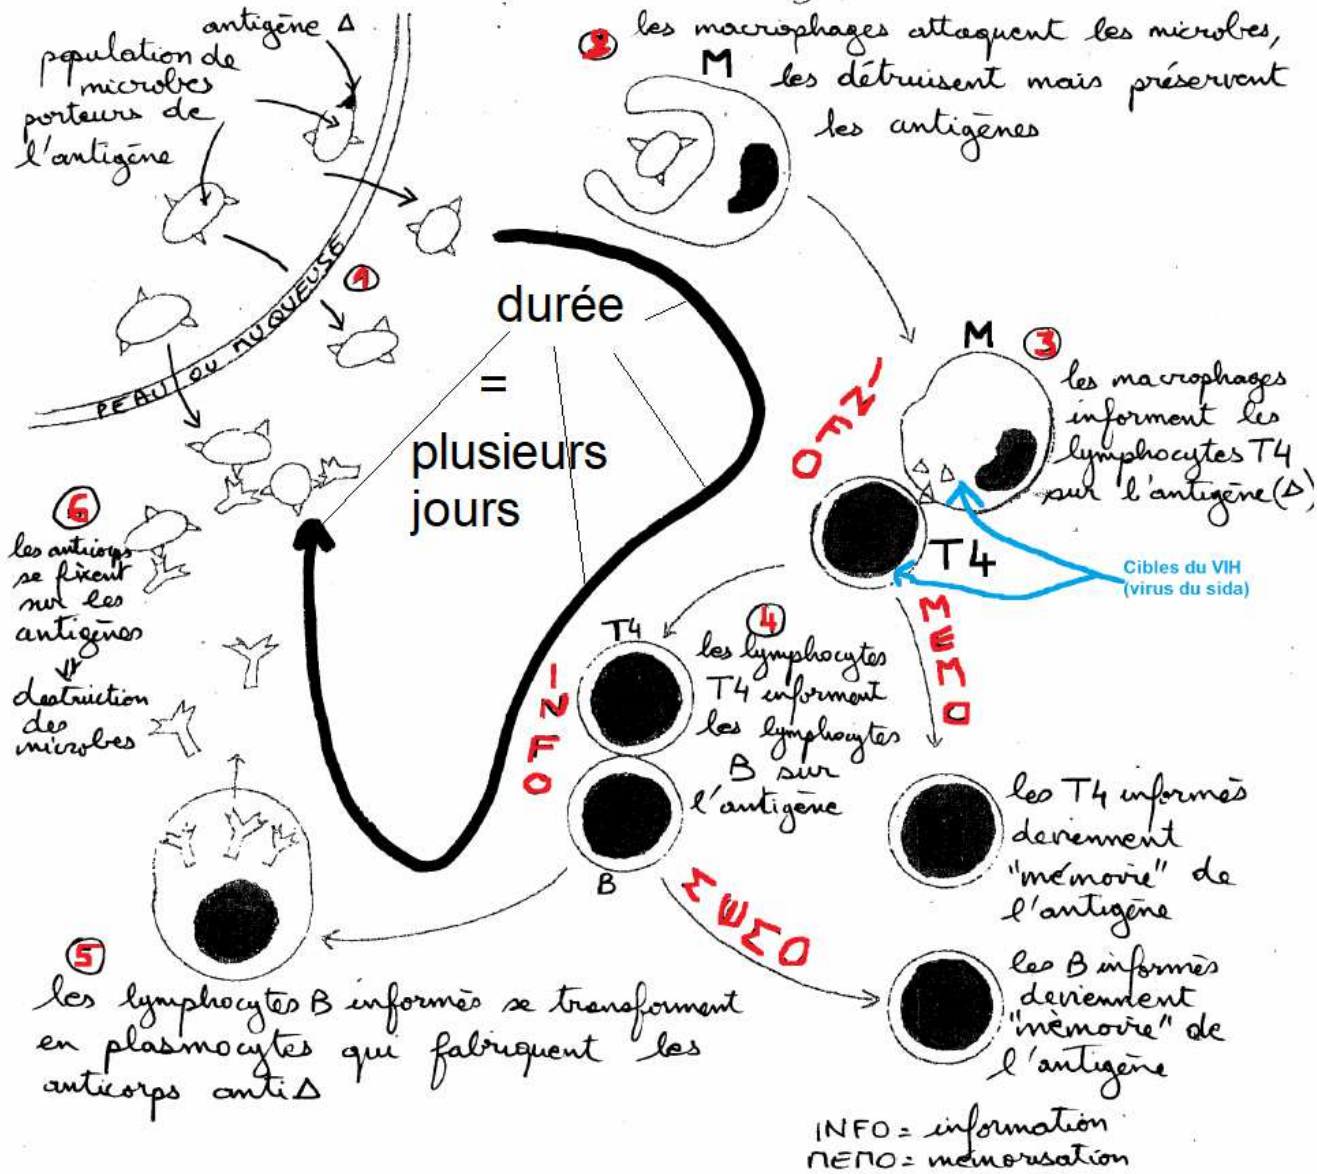 antigène Δ
population de
microbes
porteurs de
l'antigène
PEAU OU MUQUEUSE
1
2
les macrophages attaquent les microbes,
les détruisent mais préservent
les antigènes
M
durée
=
plusieurs
jours
INFO
M
3
les macrophages
informent les
lymphocytes T4
sur l'antigène (Δ)
T4
Cibles du VIH
(virus du sida)
MEMO
T4
INFO
B
4
les lymphocytes
T4 informent
les lymphocytes
B sur
l'antigène
MEMO
les T4 informés
deviennent
"mémoire" de
l'antigène
les B informés
deviennent
"mémoire" de
l'antigène
5
les lymphocytes B informés se transforment
en plasmocytes qui fabriquent les
anticorps anti Δ
6
les anticorps
se fixent
sur les
antigènes
⇓
destruction
des
microbes
INFO = information
MEMO = mémorisation